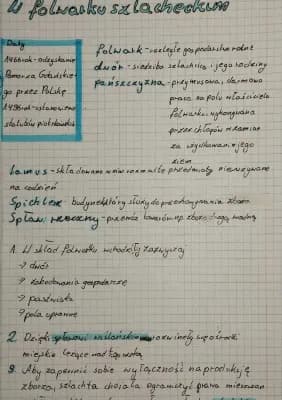 W folwarku szlacheckim
Daty
1466rok - odzyskanie
Pomorza Gdańskie-
go przez Polskę
1496rok - ustanowienie
statutów piotrkowskich
Folwark - rozległe gospodarstwo rolne
dwór - siedziba szlachcica i jego rodziny
pańszczyzna - przymusowa, darmowa
praca za polu właściciela
folwarku, wykonywana
przez chłopów w zamian
za użytkowanie jego
ziem
Lamus - składowano w nim różne przedmioty nieużywane
na codzień
Spichlerz - budynek który służy do przechowywania zboża
Spław rzeczny - przewóz towarów np. zboża drogą wodną
1. W skład folwarku wchodziły zazwyczaj
→ dwór
→ zabudowania gospodarcze
→ pastwiska
→ pola uprawne
2. Dzięki spławowi wiślańskiemu rozwinęły się ośrodki
miejskie leżące nad tą rzeką
3. Aby zapewnić sobie wyłączność na produkcję
zboża, szlachta chciała ograniczyć prawa mieszczan